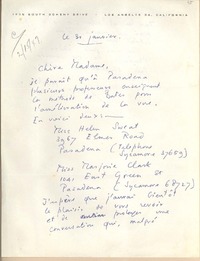 LOS ANGELES 36, CALIFORNIA
le 31 janvier.
Chère Madame,
Il paraît qu'à Pasadena
plusieurs professeurs enseignent
la méthode de Bates pour
l'amélioration de la vue.
En voici deux —
Miss Helen Sweat
Elmer Road
Pasadena (Telephone
Sycamore 37659)
Miss Marjorie Clark
East Green St
Pasadena (Sycamore 68727)
J'espère que j'aurai bientôt
le plaisir de vous revoir
et de prolonger une
conversation qui, malgré